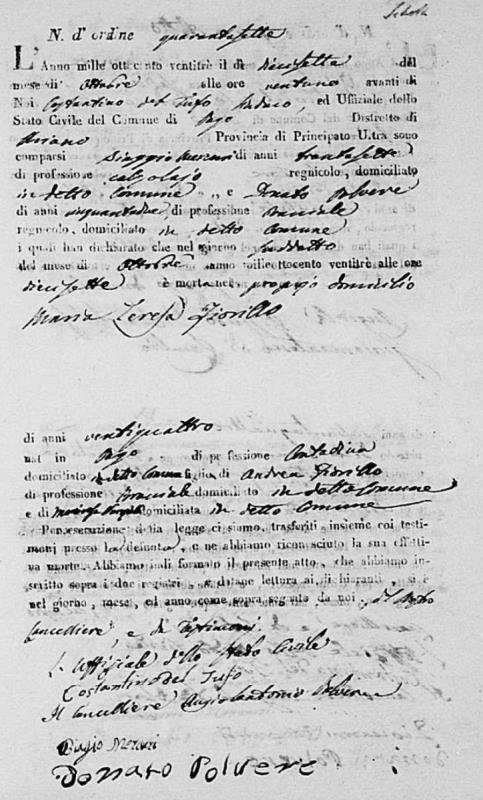 N. d'ordine quarantasette
L'Anno mille ottocento ventitrè il dì diecisette del
mese di Ottobre alle ore ventuno avanti di
Noi Costantino del Tufo Sindaco, ed Uffiziale dello
Stato Civile del Comune di Distretto di
Ariano Provincia di Principato Ultra sono
comparsi di anni trentasette
di professione calzolajo regnicolo, domiciliato
in detto Comune, e Donato Polvere
di anni cinquantadue di professione bracciale
regnicolo, domiciliato in detto Comune
i quali han dichiarato che nel giorno suddetto
del mese di Ottobre anno milleottocento ventitrè alle ore
diecisette è morta nel proprio domicilio
Maria Teresa Fiorillo
di anni ventiquattro
nat in di professione Contadina
domiciliato in detto Comune figlia di Andrea Fiorillo
di professione bracciale domiciliato in detto Comune
e di domiciliata in detto Comune
Per esecuzione della legge ci siamo trasferiti insieme coi testi-
moni presso la defunta, e ne abbiamo riconosciuto la sua effetti-
va morte. Abbiamo indi formato il presente atto, che abbiamo
inscritto sopra i due registri, e datane lettura ai dichiaranti, si è
nel giorno, mese, ed anno come sopra segnato da noi, dal nostro
Cancelliere, e da Testimonj
L'Uffiziale dello Stato Civile
Costantino del Tufo
Il Cancelliere Angiolantonio Polvere
Biagio
Donato Polvere